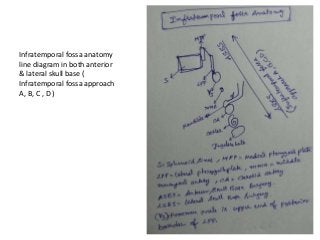 Infratemporal fossa anatomy
line diagram in both anterior
& lateral skull base (
Infratemporal fossa approach
A, B, C , D )
Infratemporal fossa Anatomy
MPP
ASBS
S
LPP
MMA
CA
LSBS
S = Sphenoid Sinus, MPP = Medial pterygoid plate
LPP = lateral pterygoid plate, MMA = middle
meningeal artery, CA = Carotid artery
ASBS = Anterior Skull Base Surgery.
LSBS = lateral Skull Base Surgery.
Foramen ovale is upper end of posterior
border of LPP.